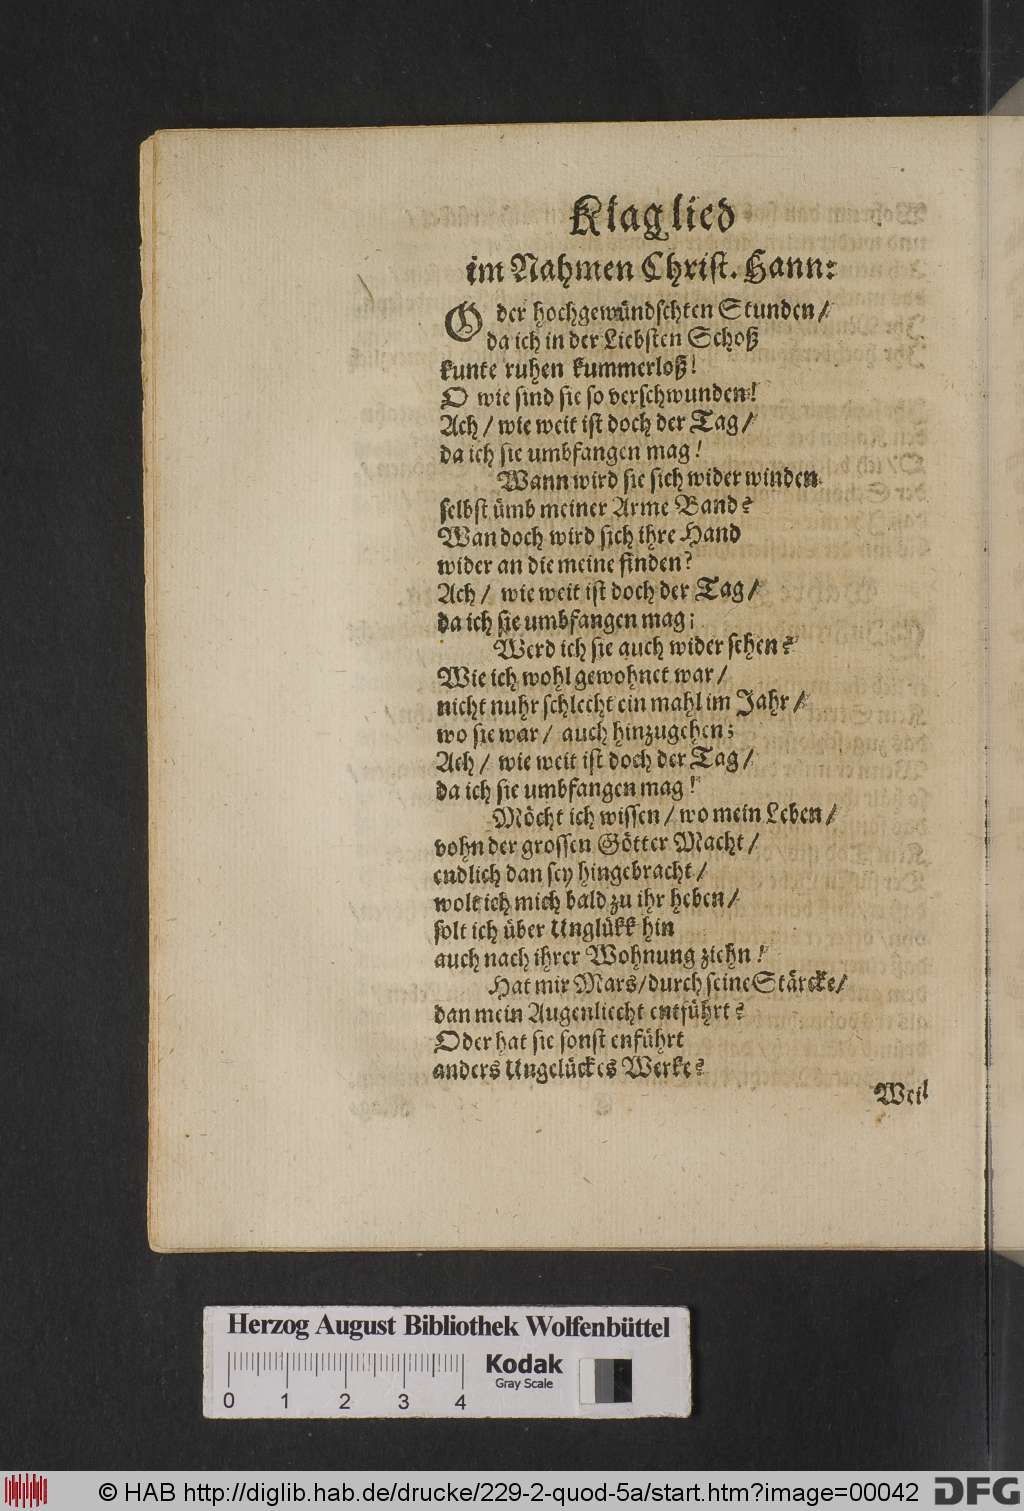 Klaglied
im Nahmen Christ. Hann:
O der hochgewündschten Stunden /
da ich in der Liebsten Schoß
kunte ruhen kummerloß!
O wie sind sie so verschwunden!
Ach / wie weit ist doch der Tag /
da ich sie umbfangen mag!
Wann wird sie sich wider winden
selbst ümb meiner Arme Band?
Wan doch wird sich ihre Hand
wider an die meine finden?
Ach / wie weit ist doch der Tag /
da ich sie umbfangen mag;
Werd ich sie auch wider sehen?
Wie ich wohl gewohnet war /
nicht nuhr schlecht ein mahl im Jahr /
wo sie war / auch hinzugehen;
Ach / wie weit ist doch der Tag /
da ich sie umbfangen mag!
Möcht ich wissen / wo mein Leben /
vohn der grossen Götter Macht /
endlich dan sey hingebracht /
wolt ich mich bald zu ihr heben /
solt ich über Unglükk hin
auch nach ihrer Wohnung ziehn!
Hat mir Mars / durch seine Stärcke /
dan mein Augenliecht entführt?
Oder hat sie sonst enführt
anders Ungelückes Werke?
Weil
Herzog August Bibliothek Wolfenbüttel
Kodak
Gray Scale
0 1 2 3 4
© HAB http://diglib.hab.de/drucke/229-2-quod-5a/start.htm?image=00042
DFG